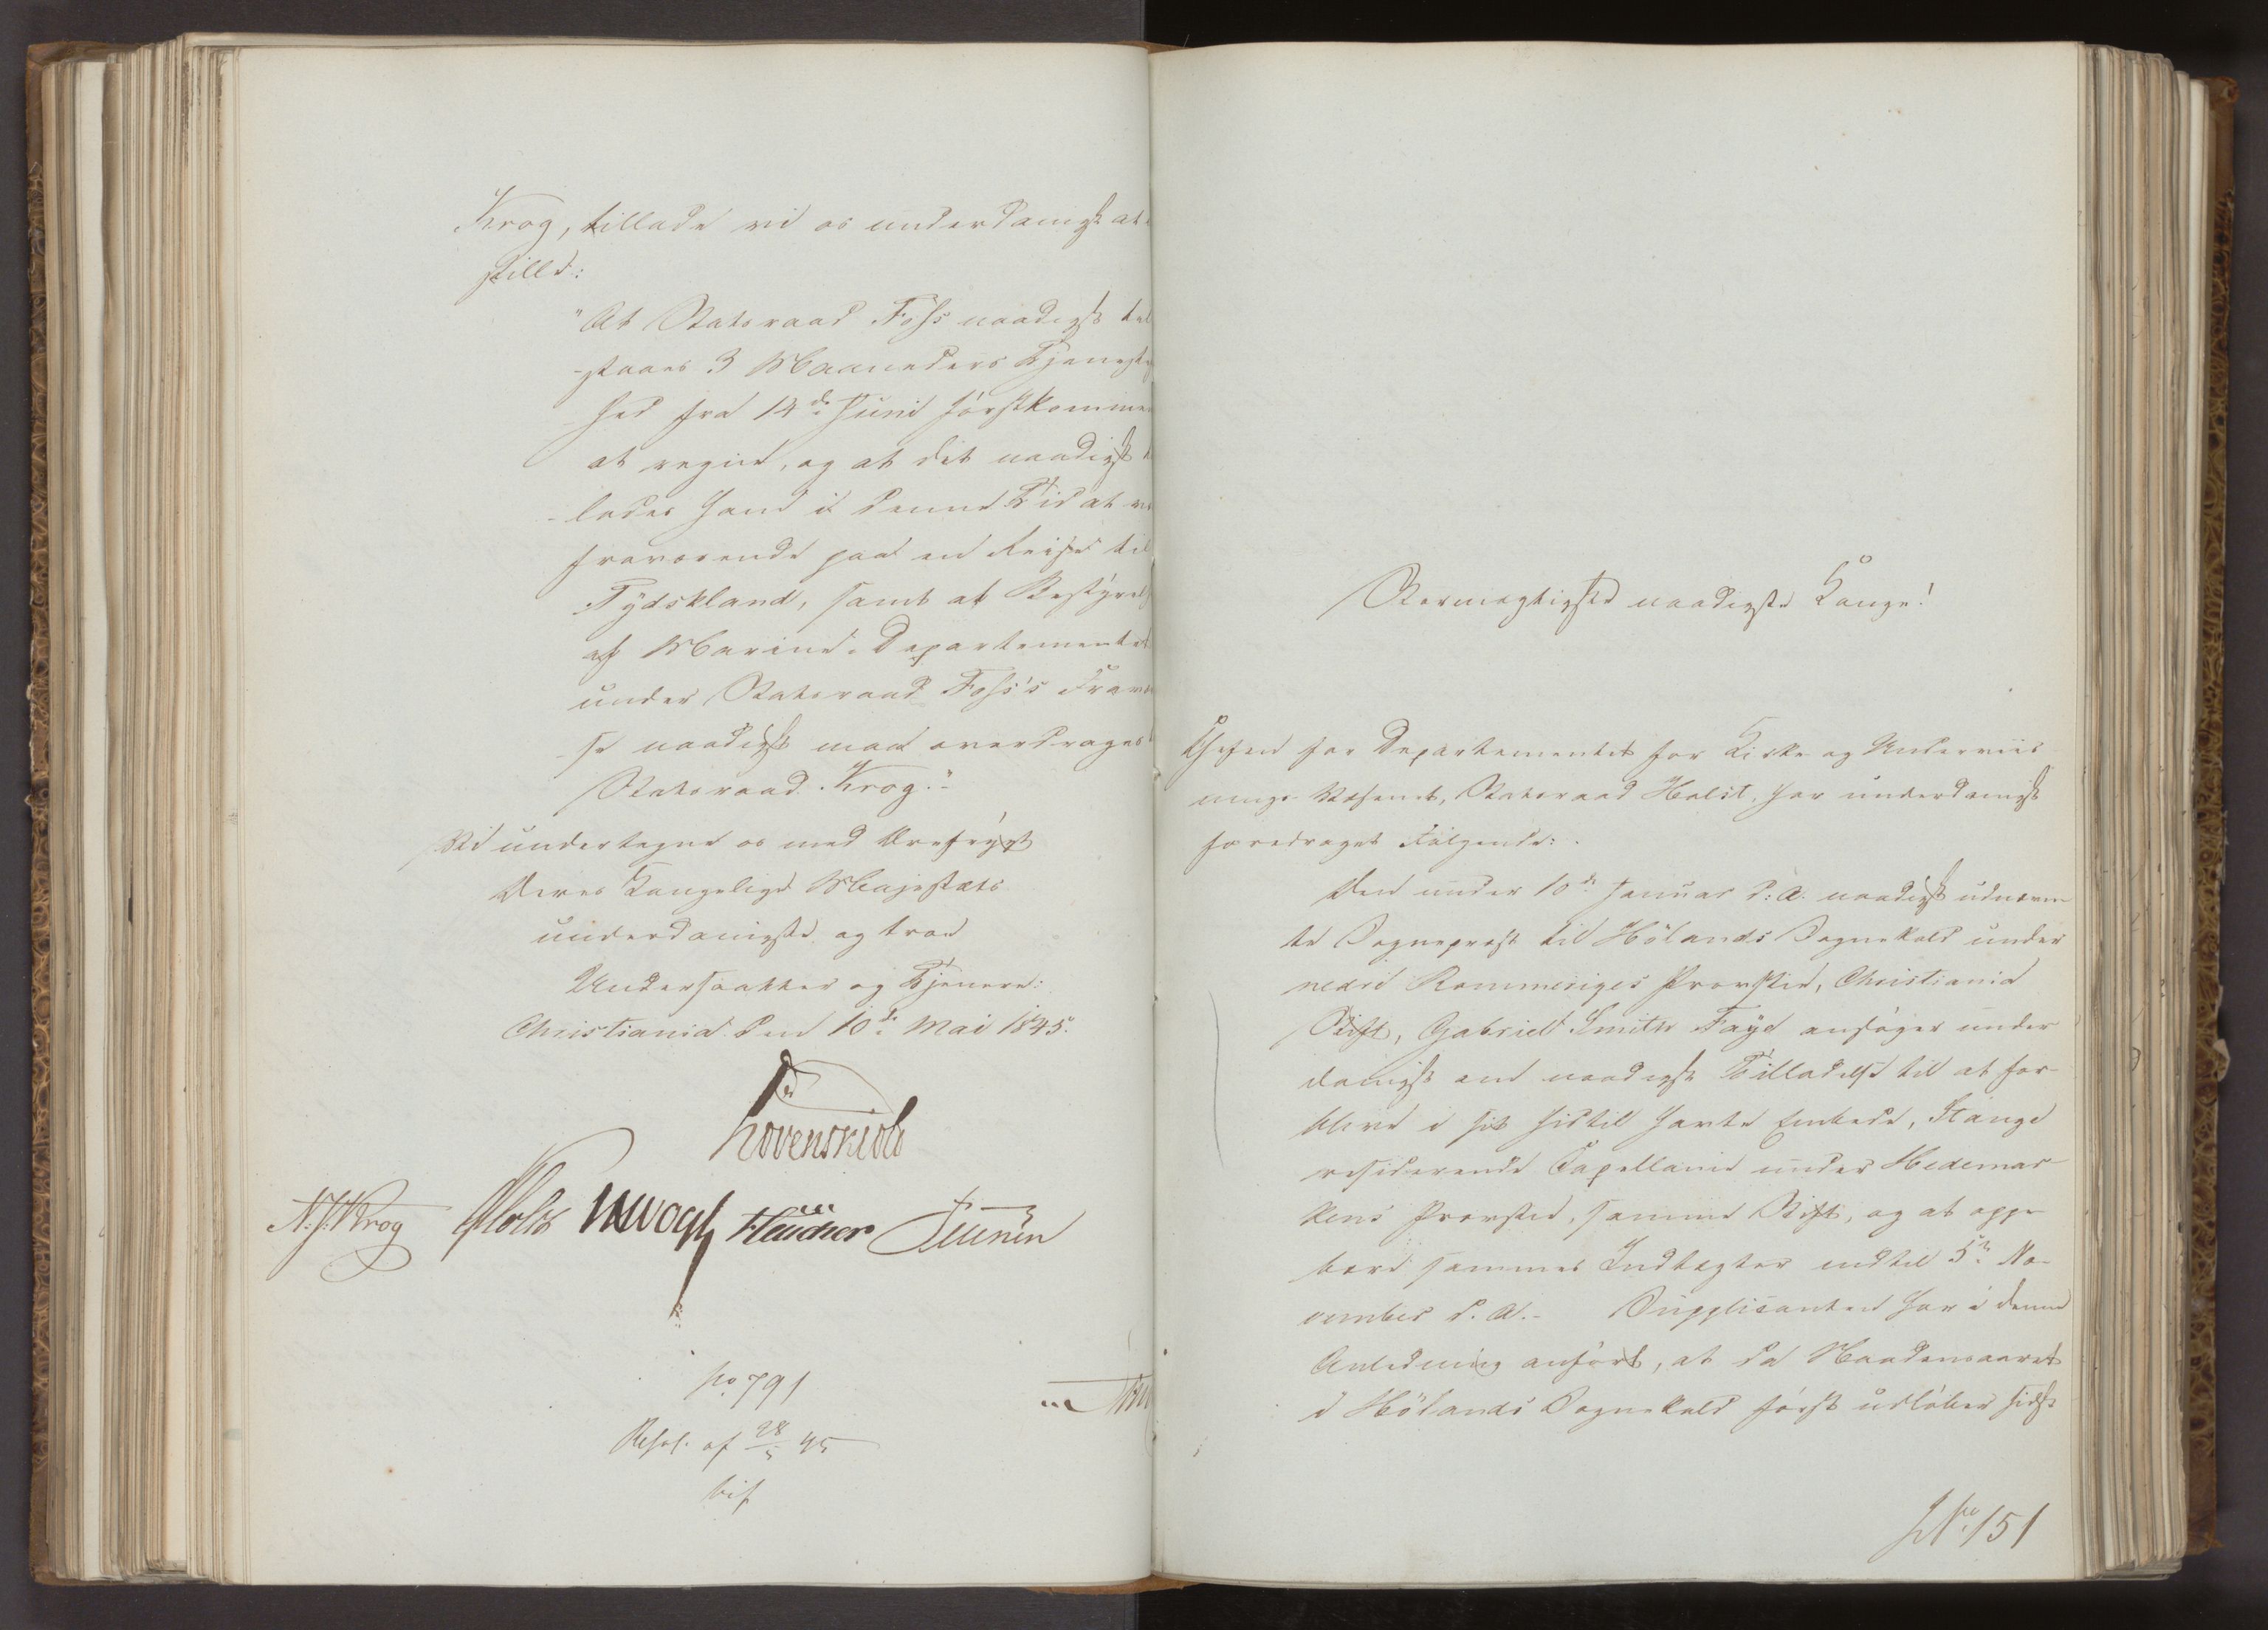 Krog, tillade vi os underdanigst at
stille:
"At Statsraad Foss naadigst til
-staaes 3 Maaneders Tjeneste
hed fra 14de Juni førstkommen
at regne, og at det naadigst
-lades ham i denne Tid at væ
fraværende paa en Reise til
Tydskland, samt at Bestyrels
af Marine-Departementet
under Statsraad Foss's Fravæ
se naadigst maa overdrages
Statsraad Krog."
Vi undertegne os med Ærefrygt
Deres Kongelige Majestæts
underdanigste og troe
Undersaatter og Tjenere:
Christiania den 10de Mai 1845.
Løvenskiold
N. J. Krog Holst JHVogt
No 791
Resol. af 28/5 45
bif
Stormægtigste naadigste Konge!
Chefen for Departementet for Kirke og Underviis
nings-Væsenet, Statsraad Holst, har underdanigst
foredraget Følgende:
Den under 10de Januar d: A. naadigst udnævn
te Sogneprest til Hölands Sognekald under
nedre Rommeriges Provstie, Christiania
Stift, Gabriel Smith Faye ansøger under
danigst om naadigst Tilladelse til at for-
blive i sit hidtil havte Embede, Stange
residerende Capellanie under Hedemar-
kens Provstie, samme Stift, og at oppe
bære sammes Indtægter indtil 5te No-
vember d. A. - Supplicanten har i denne
Anledning anført, at da Naadensaaret
i Hölands Sognekald först udløber sidst
No 151